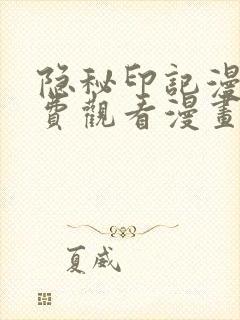 隐秘印記漫
費觀看漫畫
夏威